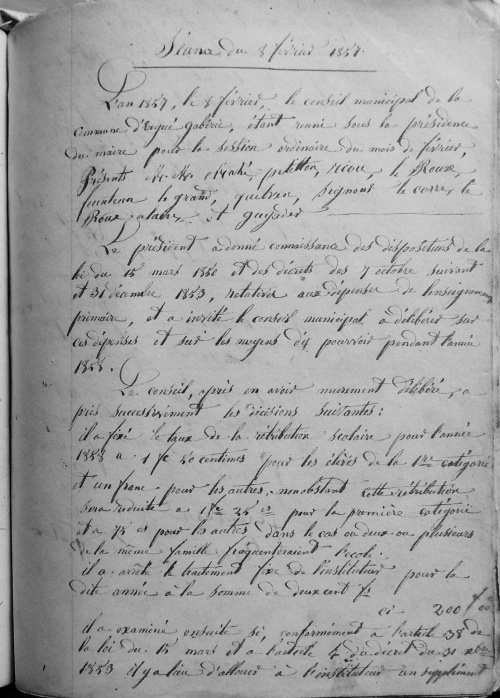 Séance du 8 février 1857.
L'an 1857, le 8 février, le conseil municipal de la
commune d'Ergué gabéric, étant réuni sous la présidence
du maire pour la session ordinaire du mois de février,
Présents M. M. Mahé, petillon, riou, le Roux,
le grand, signour le corre, le
Roux alain, et guyader
Le président a donné connaissance des dispositions de la
loi du 15 mars 1850 et des décrets des 7 octobre suivant
et 31 décembre 1853, relatives aux dépenses de l'enseignement
primaire, et a invité le conseil municipal a délibérer sur
ces dépenses et sur les moyens d'y pourvoir pendant l'année
1858.
Le conseil, après en avoir murement délibéré, a
pris successivement les décisions suivantes:
il a fixé le taux de la rétribution scolaire pour l'année
1858 a 1 fc 50 centimes pour les élèves de la 1re catégorie
et un franc pour les autres, nonobstant cette rétribution
sera réduite a 1fc 25 cs pour la première catégorie
et a 75 cs pour les autres dans le cas ou deux ou plusieurs
de la même famille fréquenteraient l'école.
il a arrêté le traitement fixe de l'instituteur pour la
dite année à la somme de deux cent f.
ci 200 f 00
il a examiné ensuite si, conformément à l'article 38 de
la loi du 15 mars et a l'article 4 du décret du 31 xbre
1853 il y a lieu d'allouer à l'instituteur un supplément